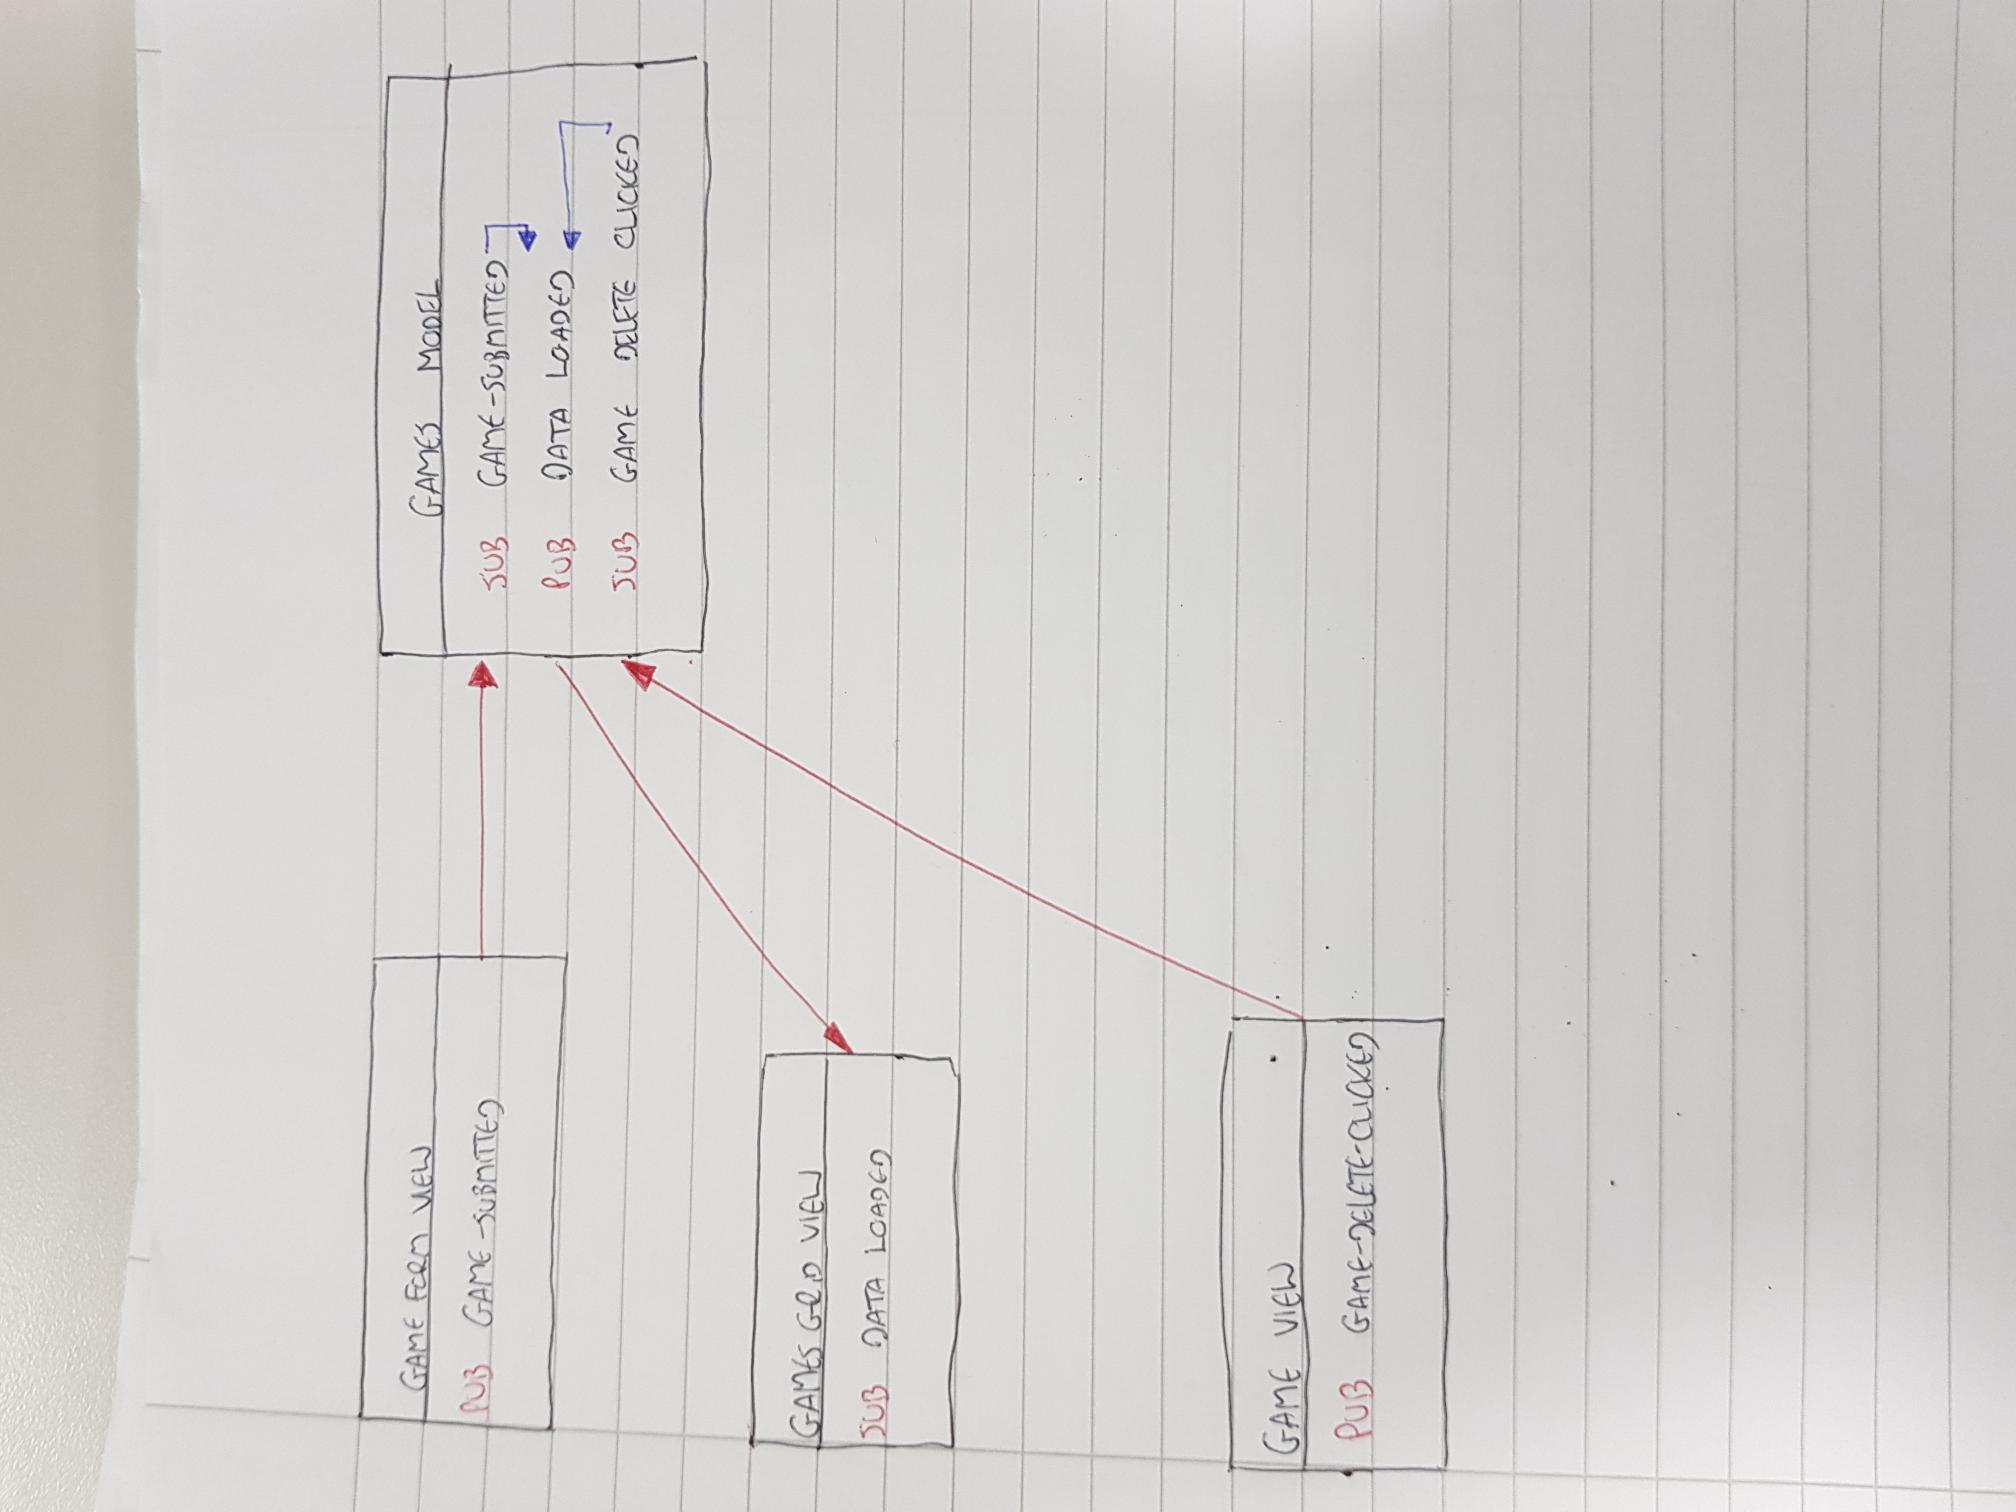 GAME FORM VIEW
PUB GAME-SUBMITTED
GAMES MODEL
SUB GAME-SUBMITTED
PUB DATA LOADED
SUB GAME DELETE CLICKED
GAMES GRID VIEW
SUB DATA LOADED
GAME VIEW
PUB GAME-DELETE-CLICKED